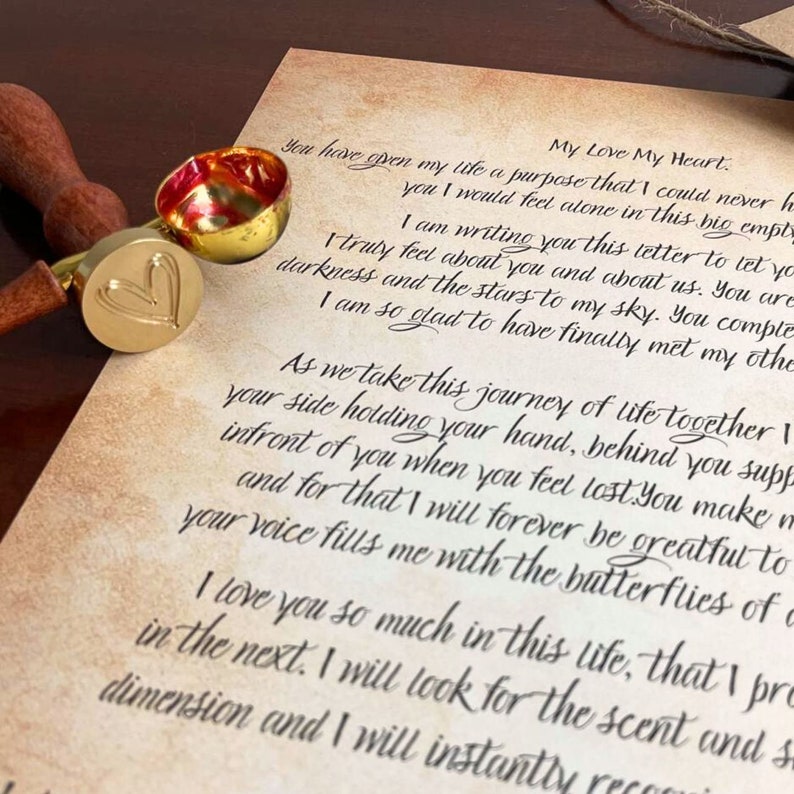 My Love My Heart.
You have given my life a purpose that I could never h
you I would feel alone in this big empty
I am writing you this letter to let yo
I truly feel about you and about us. You are
darkness and the stars to my sky. You comple
I am so glad to have finally met my othe
As we take this journey of life together I
your side holding your hand, behind you supp
infront of you when you feel lost.You make m
and for that I will forever be greatful to
your voice fills me with the butterflies of
I love you so much in this life, that I pro
in the next. I will look for the scent and s
dimension and I will instantly recogni